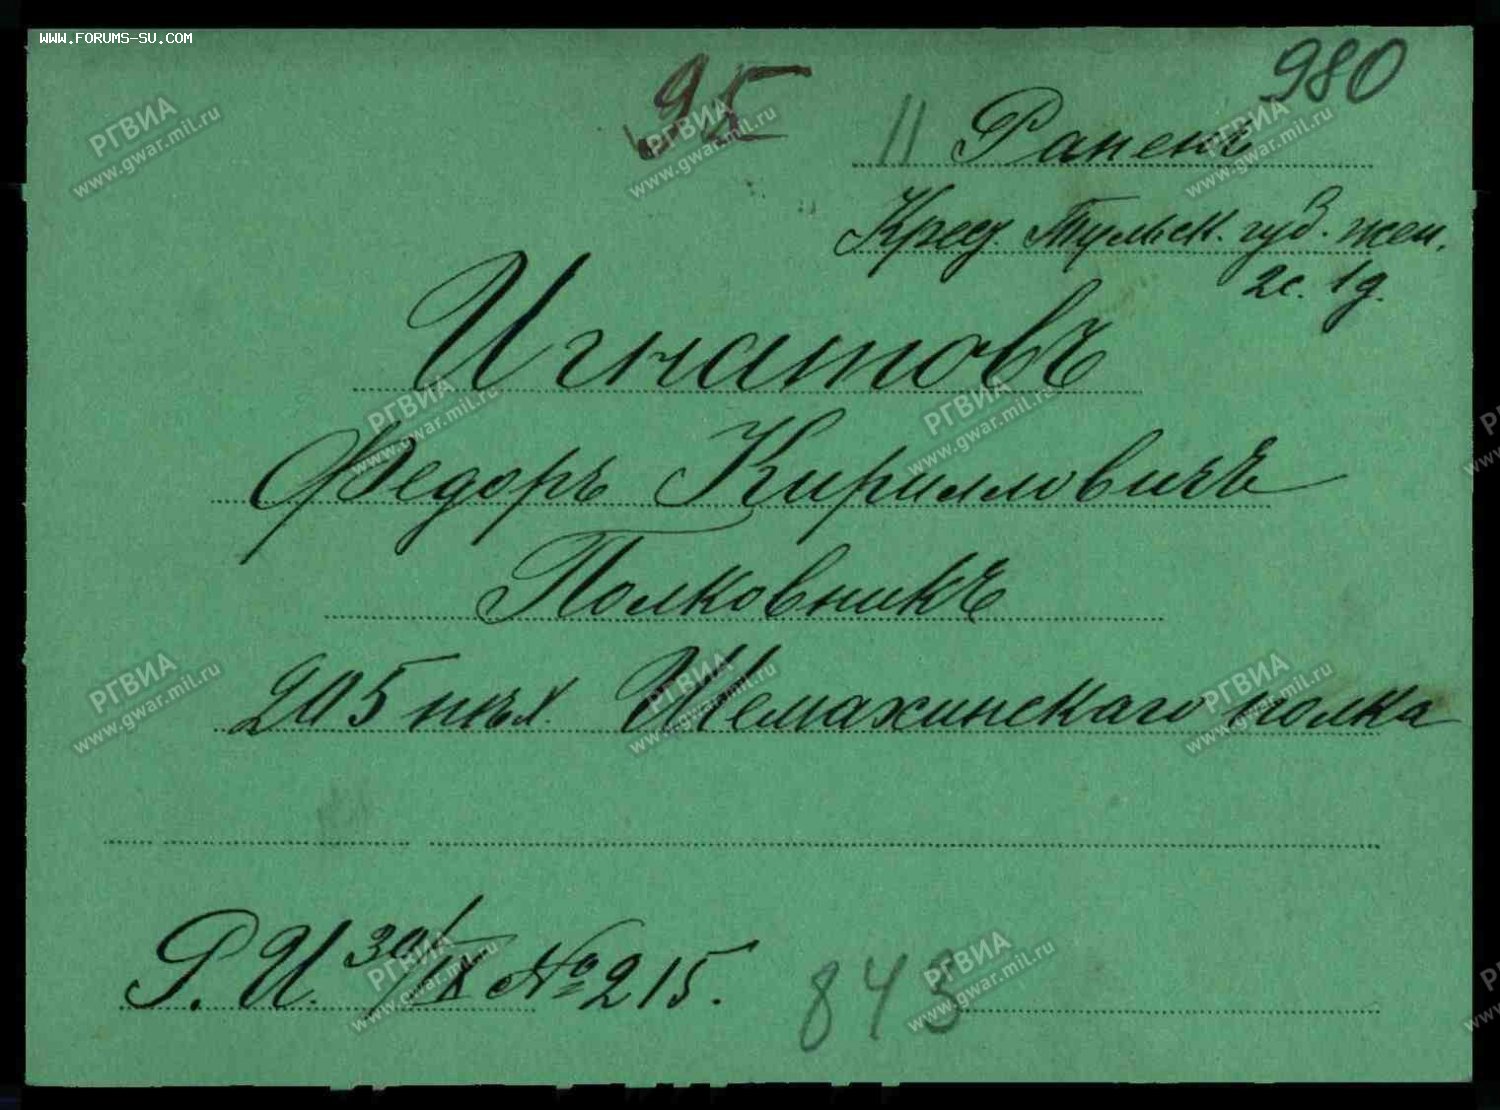 WWW.FORUMS-SU.COM
95
980
11 Раненъ
Крес. Тульск. губ. жен.
2с. 1д.
Игнатовъ
Федоръ Кирилловичъ
Полковникъ
205 пѣх. Шемахинскаго полка
Р.И. 30/IX № 215.
843
РГВИА
www.gwar.mil.ru